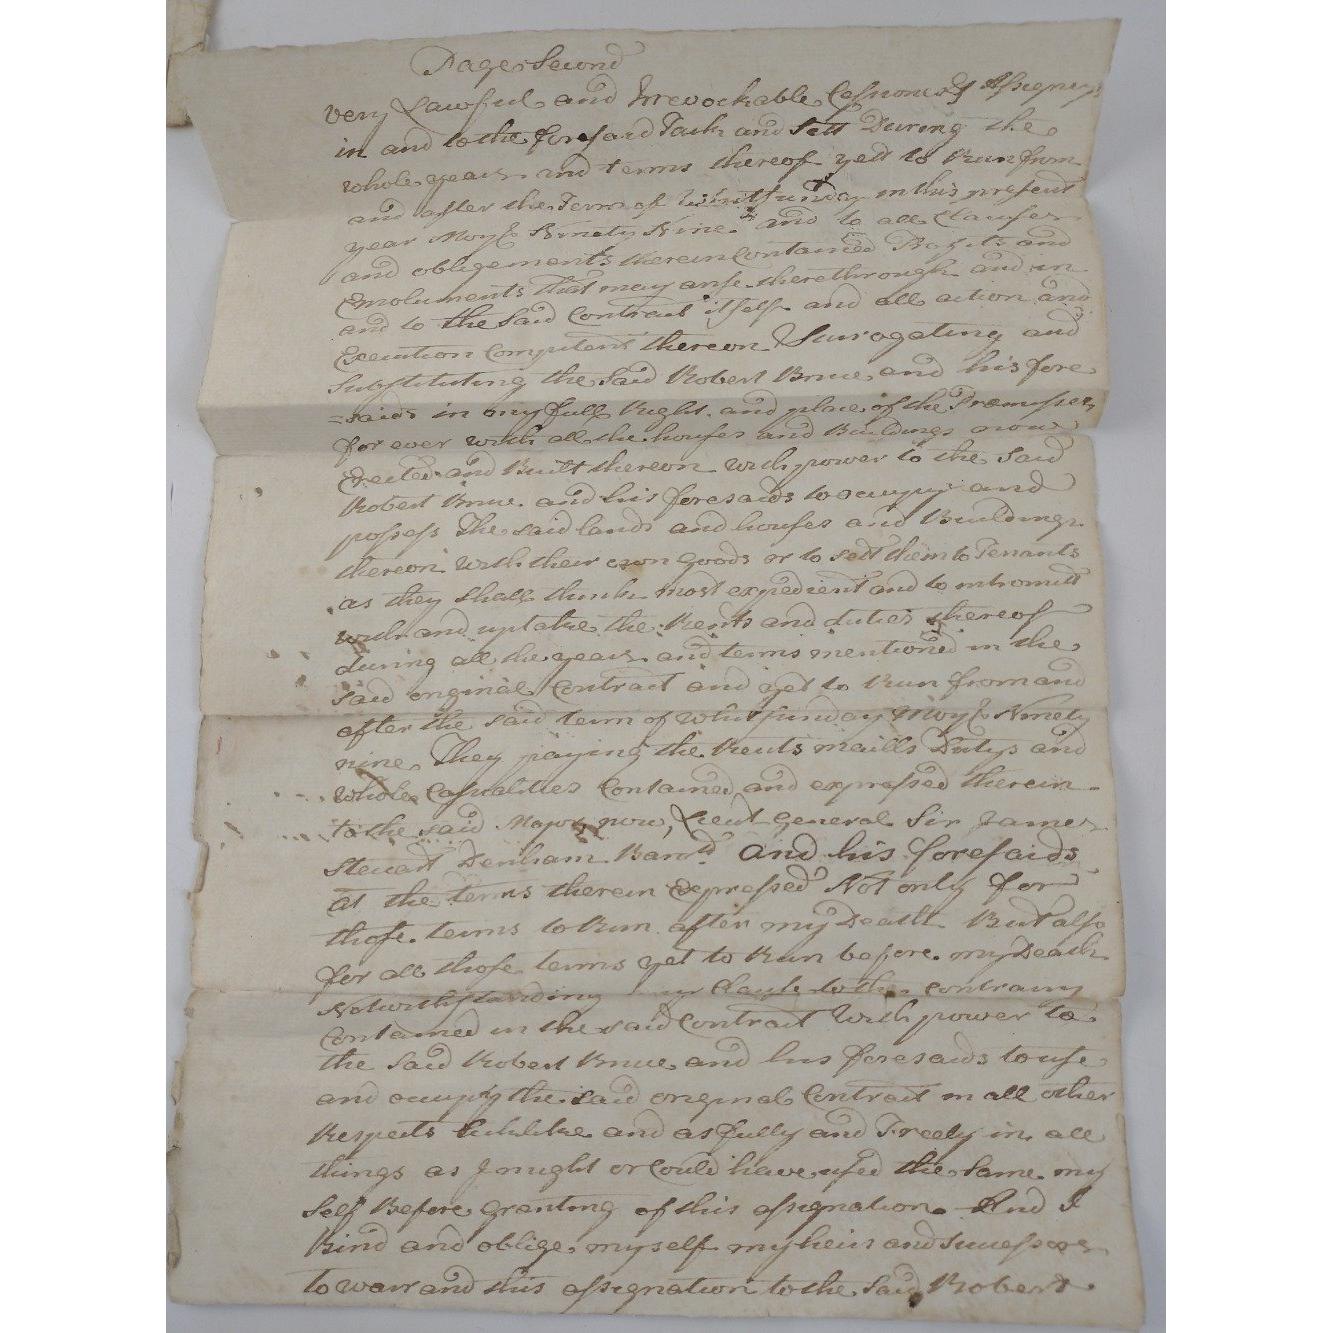 Page Second
very Lawful and Irrevockable Cessioner & Assigney
in and to the foresaid Tack and Sett During the
whole years and terms thereof yett to Run from
and after the Term of Whitsunday in this present
year Ninety Nine. and to all Clauses
and obligements therein Contained Profits and
Emoluments That may arise therethrough and in
and to the Said Contract itself and all action and
Execution Competent thereon Surrogating and
Substituting the Said Robert Bruce and his fore
=saids in my full Right and place of the Premisses
for ever with all the houses and Buildings now
Erected and Built thereon with power to the Said
Robert Bruce and his foresaids to occupy and
possess The said lands and houses and Buildings
thereon with their own Goods or to sett them to Tenants
as they shall think most expedient and to intromitt
with and uptake the Rents and duties thereof
during all the years and terms mentioned in the
said original Contract and yet to Run from and
after the said term of Whitsunday Ninety
nine They paying the Rents maills Dutys and
whole Casualities Contained and expressed therein
to the said Major now, Lieut General Sir James
Stewart Denham Baronet And his foresaids
at the terms therein Expressed Not only for
those terms to Run after my Death But also
for all those terms yet to Run before my Death
Notwithstanding Clause to the contrary
Contained in the said Contract With power to
the Said Robert Bruce and his foresaids to use
and occupy the said original Contract in all other
Respects and as fully and Freely in all
things as I might or Could have used the Same my
Self Before granting of this assignation. And I
Bind and oblige myself my heirs and Successors
to warrand this assignation to the Said Robert